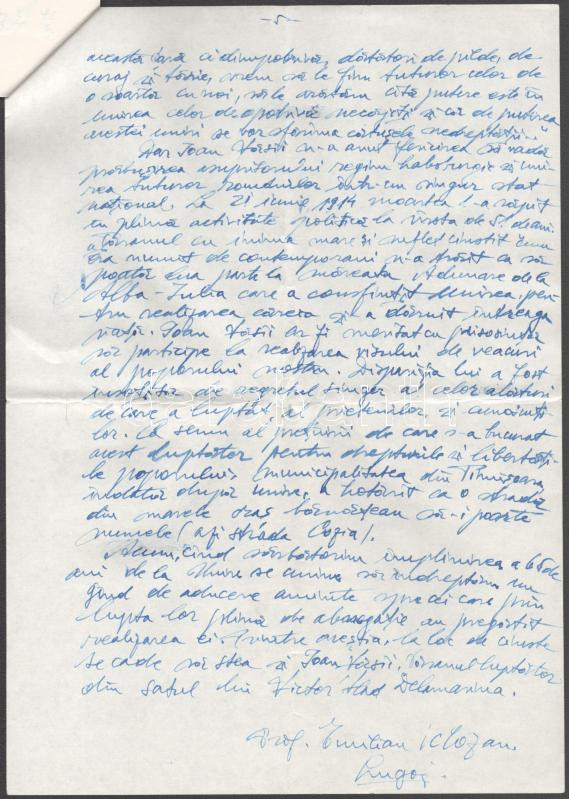 - 5 -
această țară ci dimpotrivă, dătători de pilde, de
curaj și tărie, vrem să le fim tuturor celor de
o soartă cu noi, să le arătăm cîtă putere este în
unirea celor deopotrivă necăjiți și că de puterea
acestei uniri se vor sfărîma cătușele nedreptății."
Dar Ioan Vasii n-a avut fericirea să vadă
prăbușirea asupritorului regim habsburgic și uni-
rea tuturor românilor într-un singur stat
național. La 21 iunie 1914 moartea l-a răpit
în plină activitate politică la vîrsta de de ani
Țăranul cu inima mare și suflet cinstit cum
era numit de contemporani n-a trăit ca să
poată lua parte la măreața Adunare de la
Alba-Iulia care a consfințit Unirea, pen-
tru realizarea căreia și-a dăruit întreaga
viață. Ioan Vasii ar fi meritat cu prisosință
să participe la realizarea visului de veacuri
al poporului nostru. Dispariția lui a fost
însoțită de regretul sincer al celor alături
de care a luptat, al prietenilor și cunoscuți-
lor. Ca semn al prețuirii de care s-a bucurat
acest luptător pentru drepturile și libertăți-
le poporului, municipalitatea din Timișoara
îndată după unire, a hotărît ca o stradă
din marele oraș bănățean să-i poarte
numele (azi strada Cozia).
Acum, cînd sărbătorim împlinirea a 65 de
ani de la Unire se cuvine să îndreptăm un
gînd de aducere aminte spre cei care prin
lupta lor plină de abnegație au pregătit
realizarea ei. Printre aceștia, la loc de cinste
se cade să stea și Ioan Vasii, țăranul luptător
din satul lui Victor Vlad Delamarina.
Prof. Emilian
Lugoj.